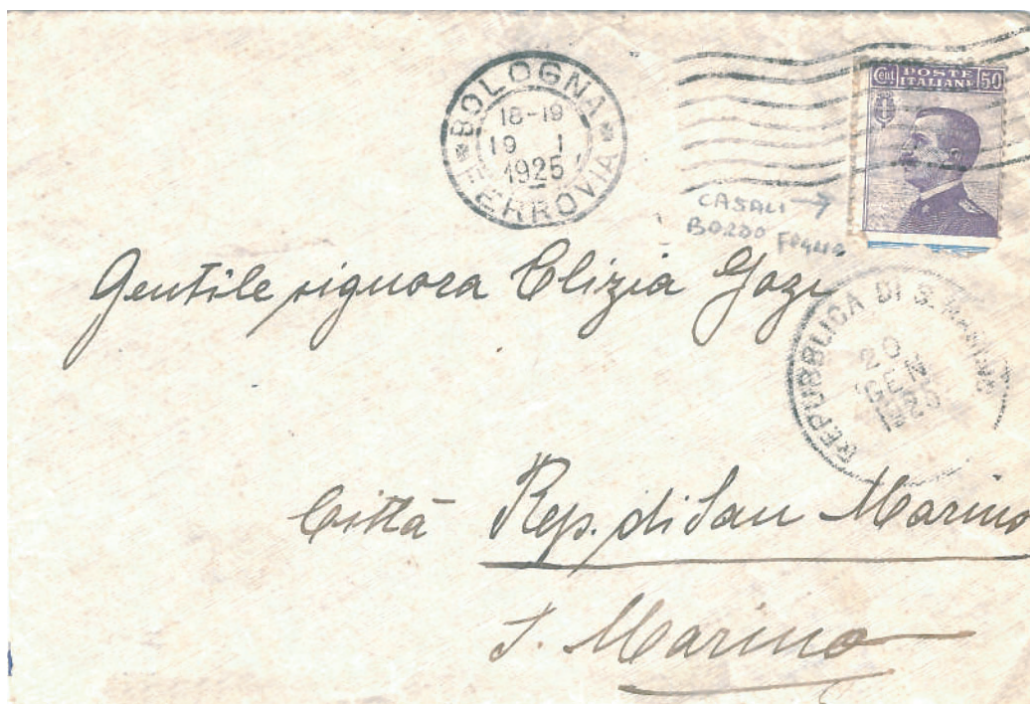 BOLOGNA
18-19
19 I
1925
FERROVIA
Cent. POSTE ITALIANE 50
CASALI →
BORDO FOGLIO
Gentile signora Clizia Gozi
REPUBBLICA DI S. MARINO
20
GEN
1925
Città Rep. di San Marino
S. Marino